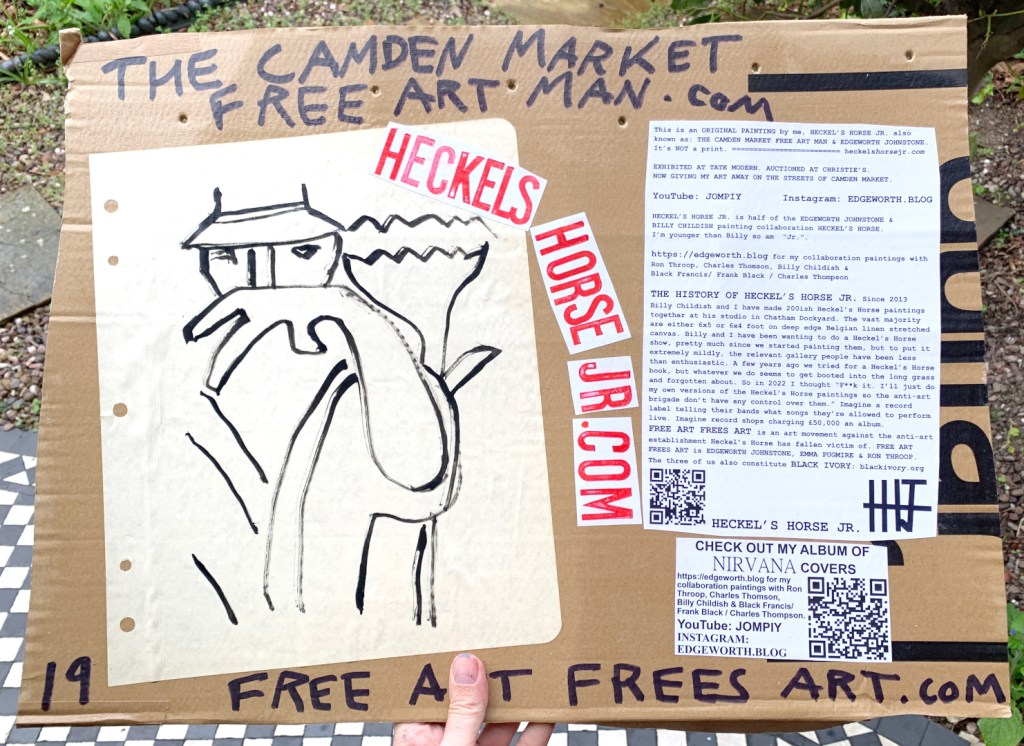 THE CAMDEN MARKET
FREE ART MAN.COM
HECKELS
HORSE
JR
.COM
This is an ORIGINAL PAINTING by me, HECKEL'S HORSE JR. also
known as: THE CAMDEN MARKEY FREE ART MAN & EDGEWORTH JOHNSTONE.
It's NOT a print. ======================== heckelshorsejr.com
EXHIBITED AT TATE MODERN. AUCTIONED AT CHRISTIE'S.
NOW GIVING MY ART AWAY ON THE STREETS OF CAMDEN MARKET.
YouTube: JOMPIY Instagram: EDGEWORTH.BLOG
HECKEL'S HORSE JR. is half of the EDGEWORTH JOHNSTONE &
BILLY CHILDISH painting collaboration HECKEL'S HORSE.
I'm younger than Billy so am "Jr.".
https://edgeworth.blog for my collaboration paintings with
Ron Throop, Charles Thomson, Billy Childish &
Black Francis/ Frank Black / Charles Thompson
THE HISTORY OF HECKEL'S HORSE JR. Since 2013
Billy Childish and I have made 200ish Heckel's Horse paintings
together at his studio in Chatham Dockyard. The vast majority
are either 6x5 or 6x4 foot on deep edge Belgian linen stretched
canvas. Billy and I have been wanting to do a Heckel's Horse
show, pretty much since we started painting them, but to put it
extremely mildly, the relevant gallery people have been less
than enthusiastic. A few years ago we tried for a Heckel's Horse
book, but whatever we do seems to get booted into the long grass
and forgotten about. So in 2022 I thought "F**k it. I'll just do
my own versions of the Heckel's Horse paintings so the anti-art
brigade don't have any control over them." Imagine a record
label telling their bands what songs they're allowed to perform
live. Imagine record shops charging £50,000 an album.
FREE ART FREES ART is an art movement against the anti-art
establishment Heckel's Horse has fallen victim of. FREE ART
FREES ART is EDGEWORTH JOHNSTONE, EMMA PUGMIRE & RON THROOP.
The three of us also constitute BLACK IVORY: blackivory.org
HECKEL'S HORSE JR.
CHECK OUT MY ALBUM OF
NIRVANA COVERS
https://edgeworth.blog for my
collaboration paintings with Ron
Throop, Charles Thomson,
Billy Childish & Black Francis/
Frank Black / Charles Thompson.
YouTube: JOMPIY
INSTAGRAM:
EDGEWORTH.BLOG
19
FREE A T FREES ART.COM